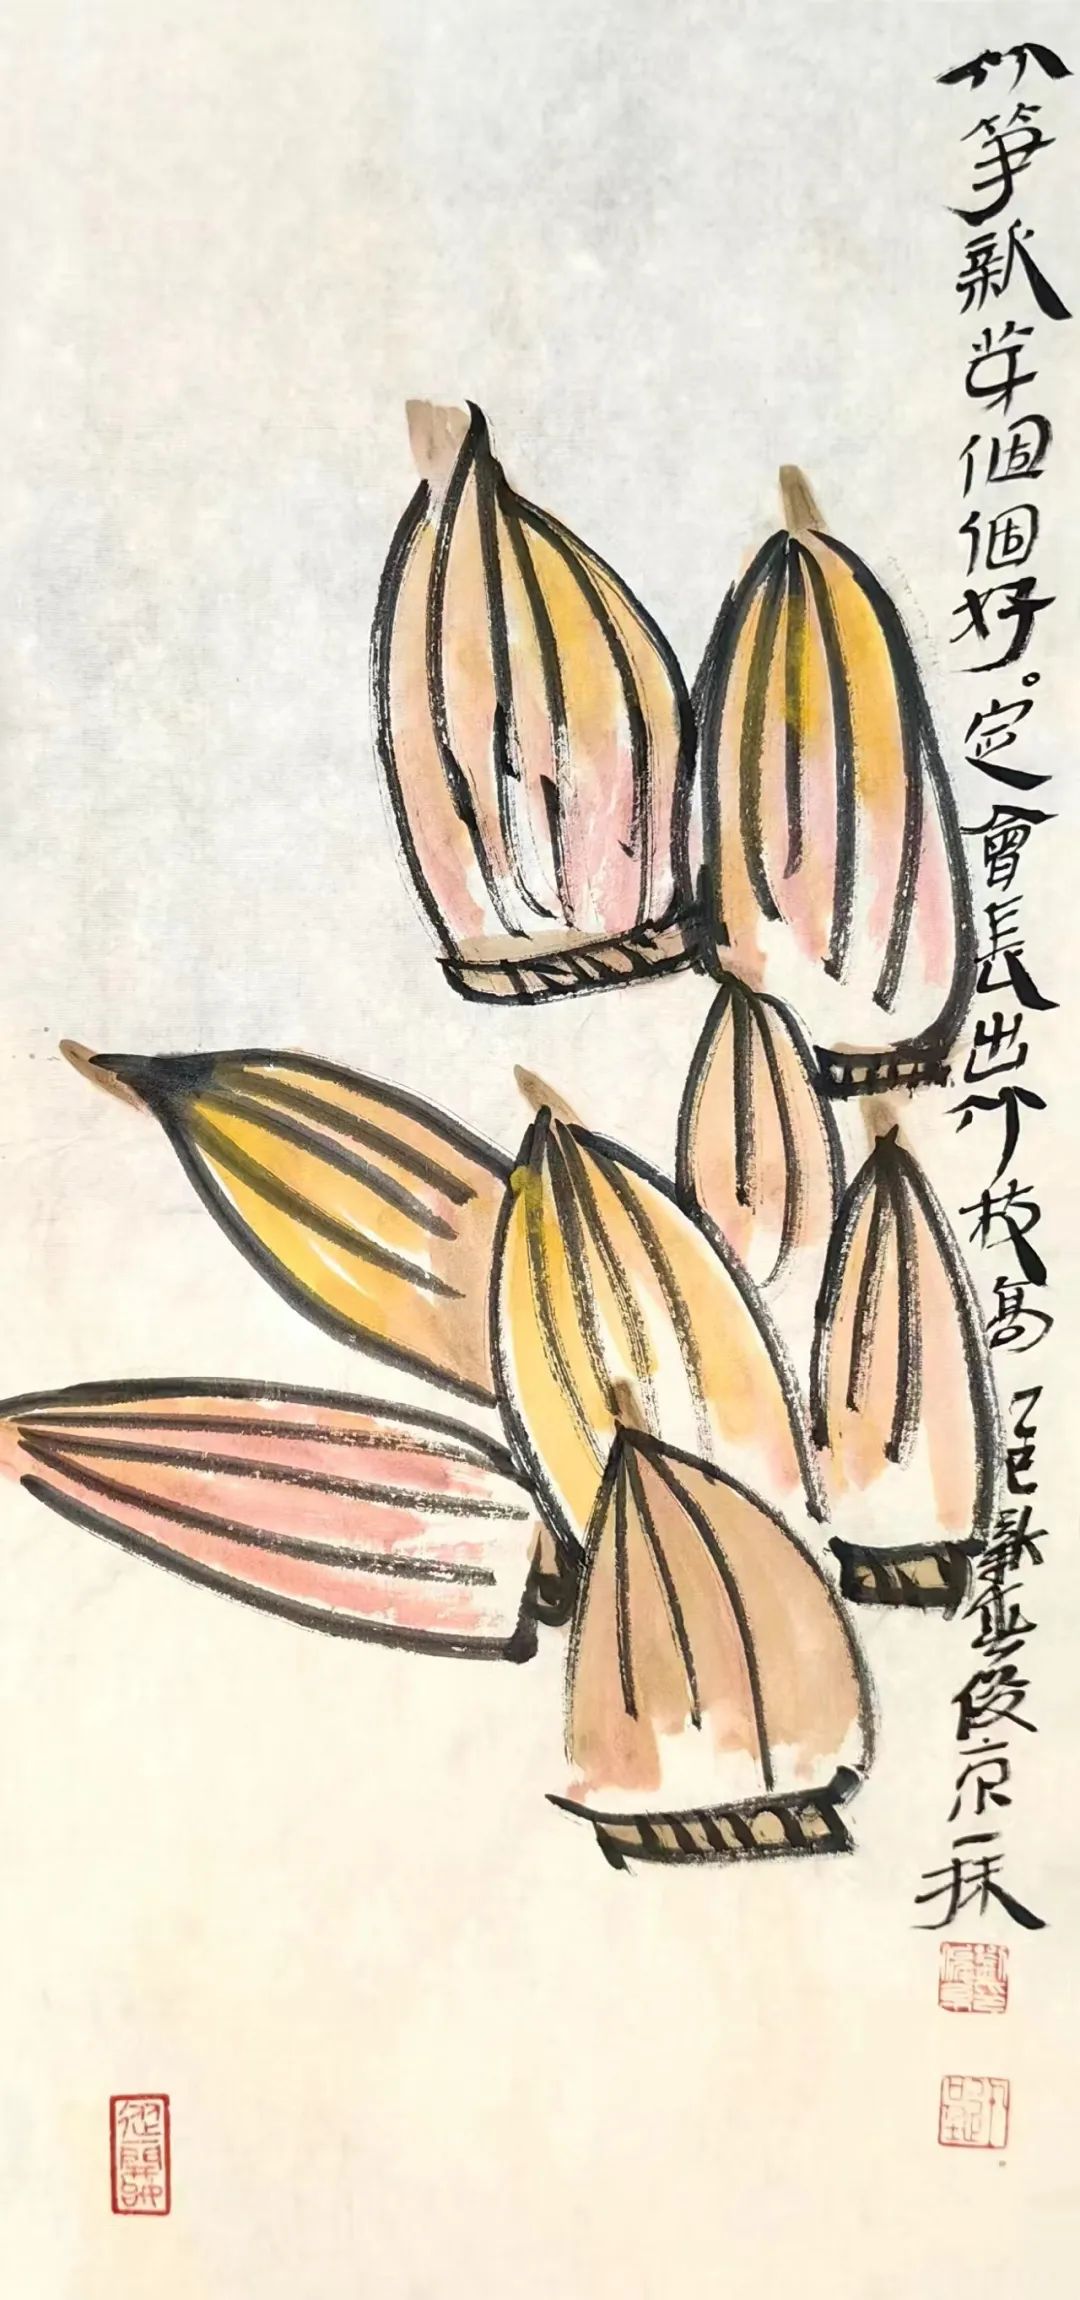 竹笋新芽個個好。定會長出竹枝高 乙巳新夏俊京一抹